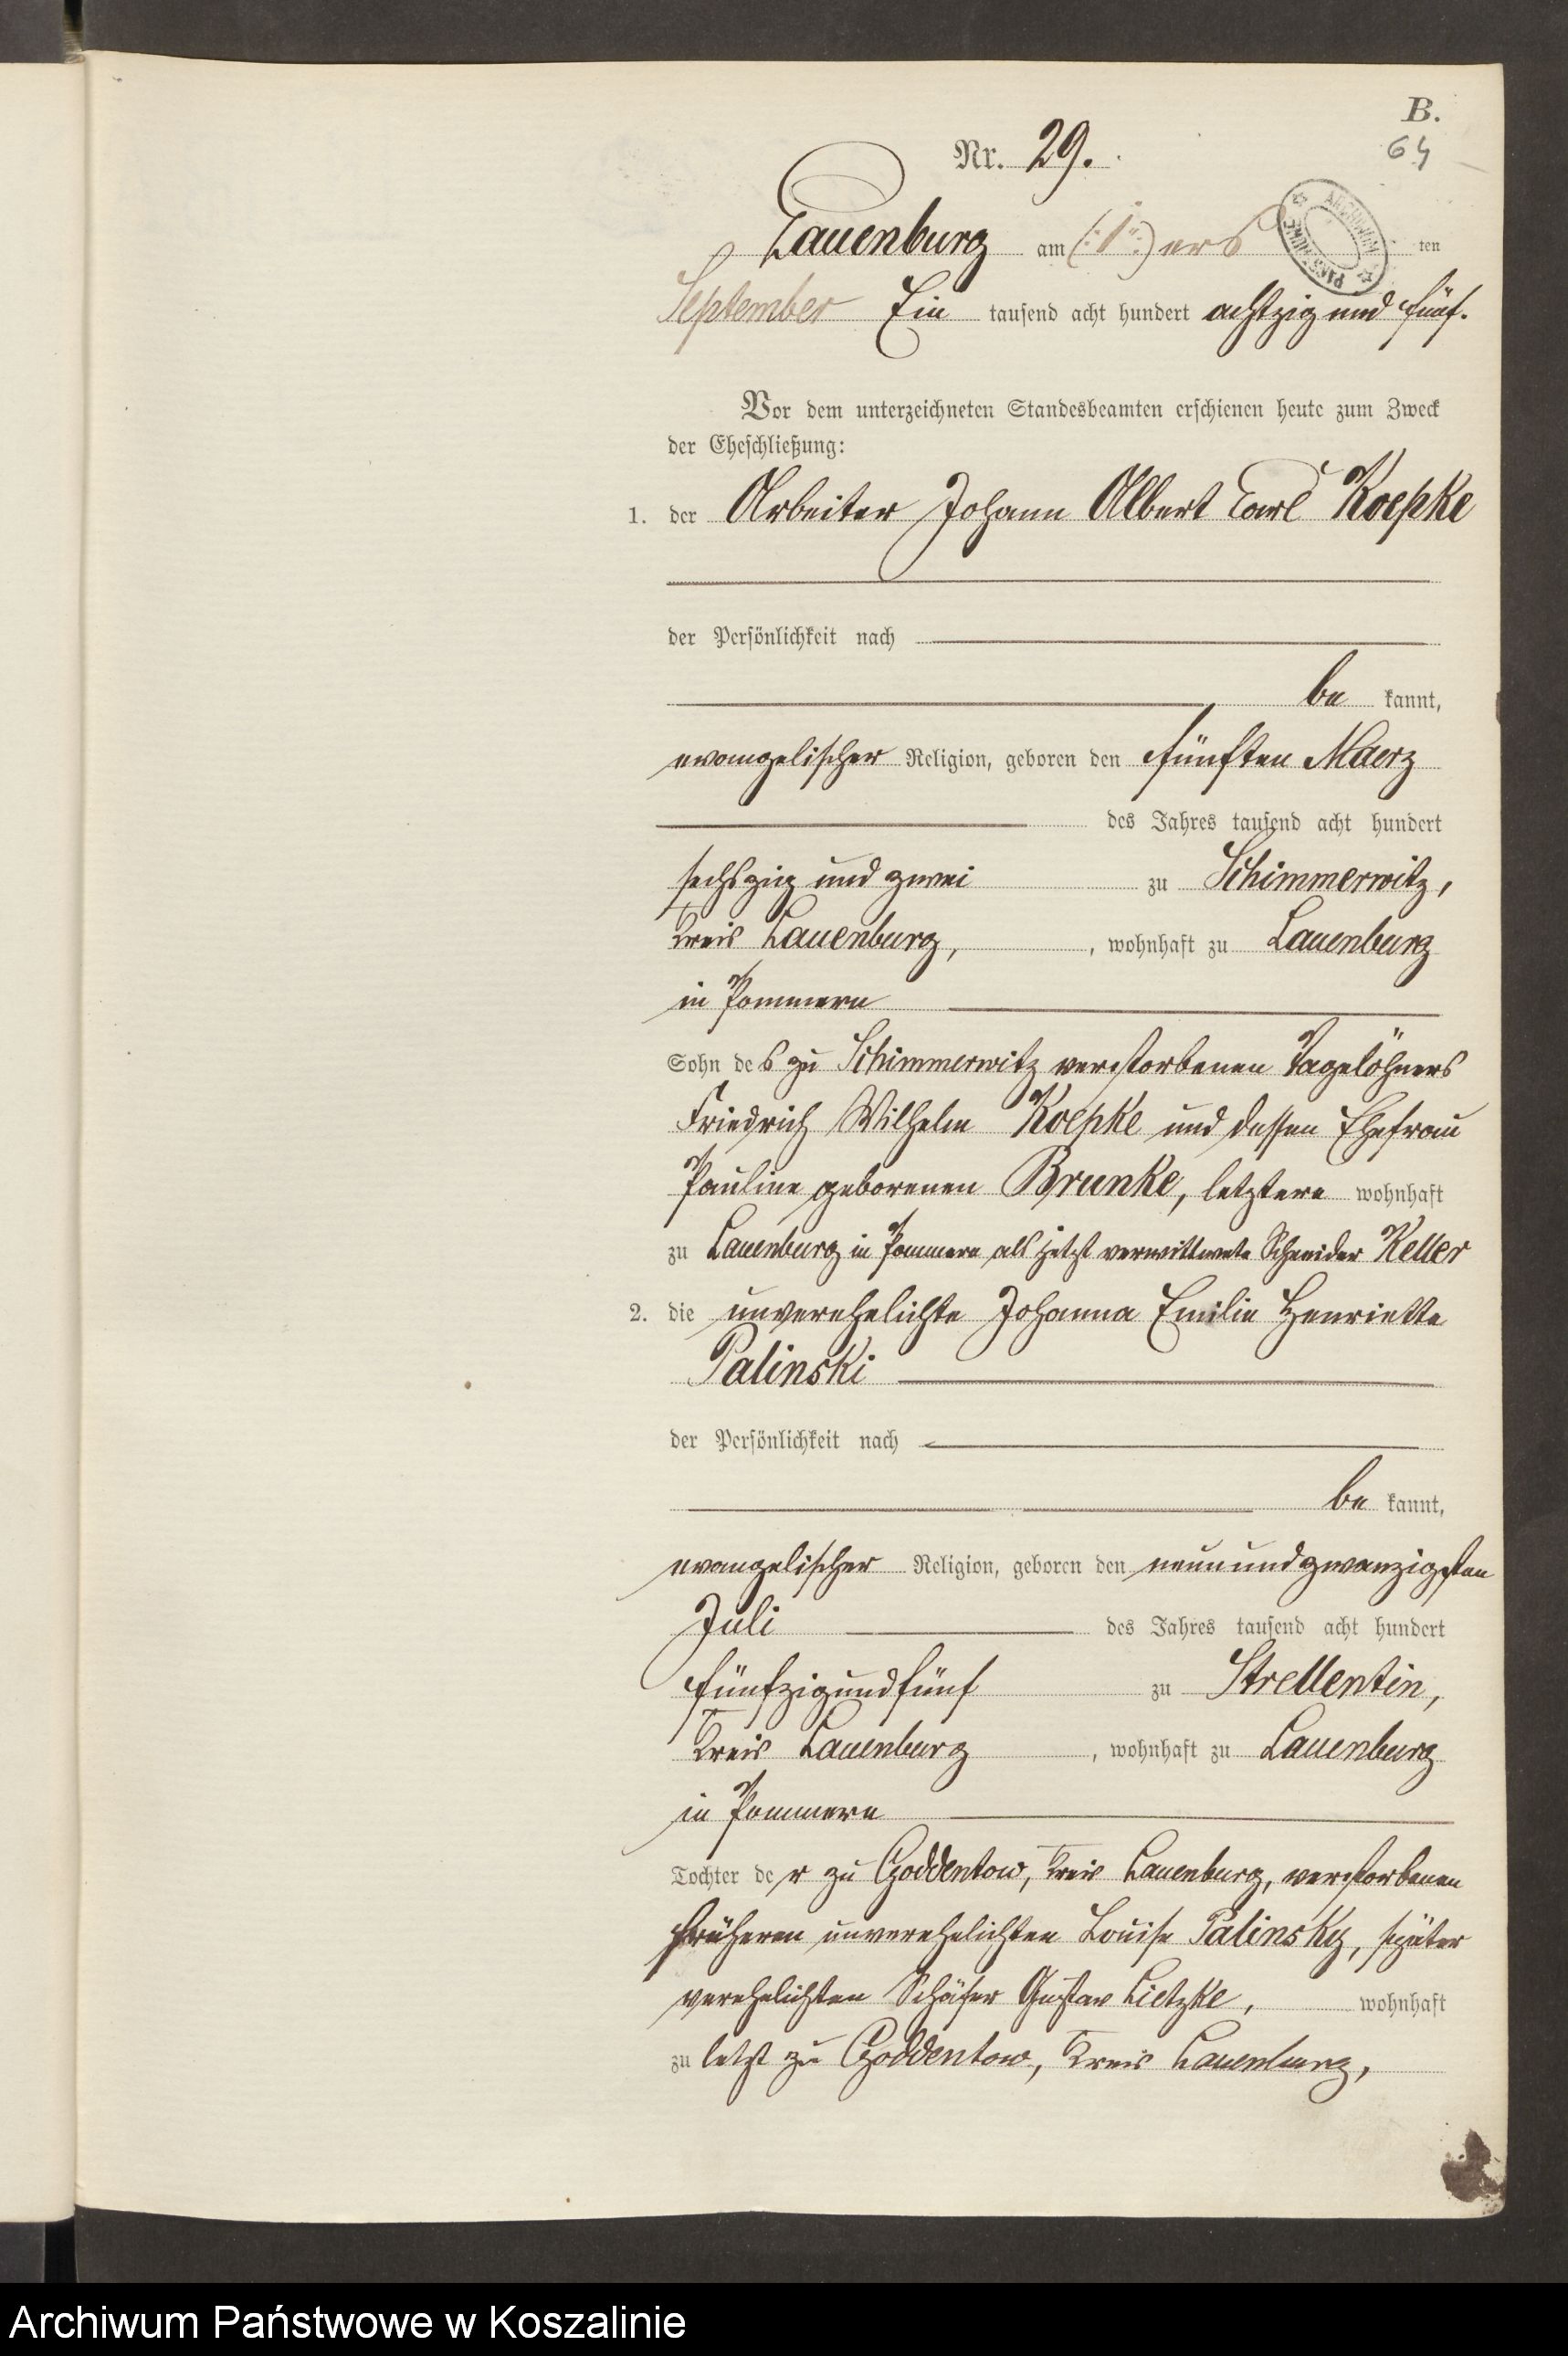 B.
64
Nr. 29.
Lauenburg am (:1:) ers ten
ARCHIWUM PAŃSTWOWE
September Ein tausend acht hundert achtzig und fünf.
Vor dem unterzeichneten Standesbeamten erschienen heute zum Zweck
der Eheschließung:
1. der Arbeiter Johann Albert Carl Koepke
der Persönlichkeit nach
be kannt,
evangelischer Religion, geboren den fünften Maerz
des Jahres tausend acht hundert
sechszig und zwei zu Schimmerwitz,
Kreis Lauenburg, , wohnhaft zu Lauenburg
in Pommern
Sohn des zu Schimmerwitz verstorbenen Tagelöhners
Friedrich Wilhelm Koepke und dessen Ehefrau
Pauline geborenen Brunke, letztere wohnhaft
zu Lauenburg in Pommern als jetzt verwittwete Schneider Keller
2. die unverehelichte Johanna Emilie Henriette
Palinski
der Persönlichkeit nach
be kannt,
evangelischer Religion, geboren den neunundzwanzigsten
Juli des Jahres tausend acht hundert
fünfzigundfünf zu Strellentin,
Kreis Lauenburg , wohnhaft zu Lauenburg
in Pommern
Tochter der zu Goddentow, Kreis Lauenburg, verstorbenen
früheren unverehelichten Louise Palinsky, später
verehelichten Schäfer Gustav Lietzke, wohnhaft
zu letzt zu Goddentow, Kreis Lauenburg,
Archiwum Państwowe w Koszalinie